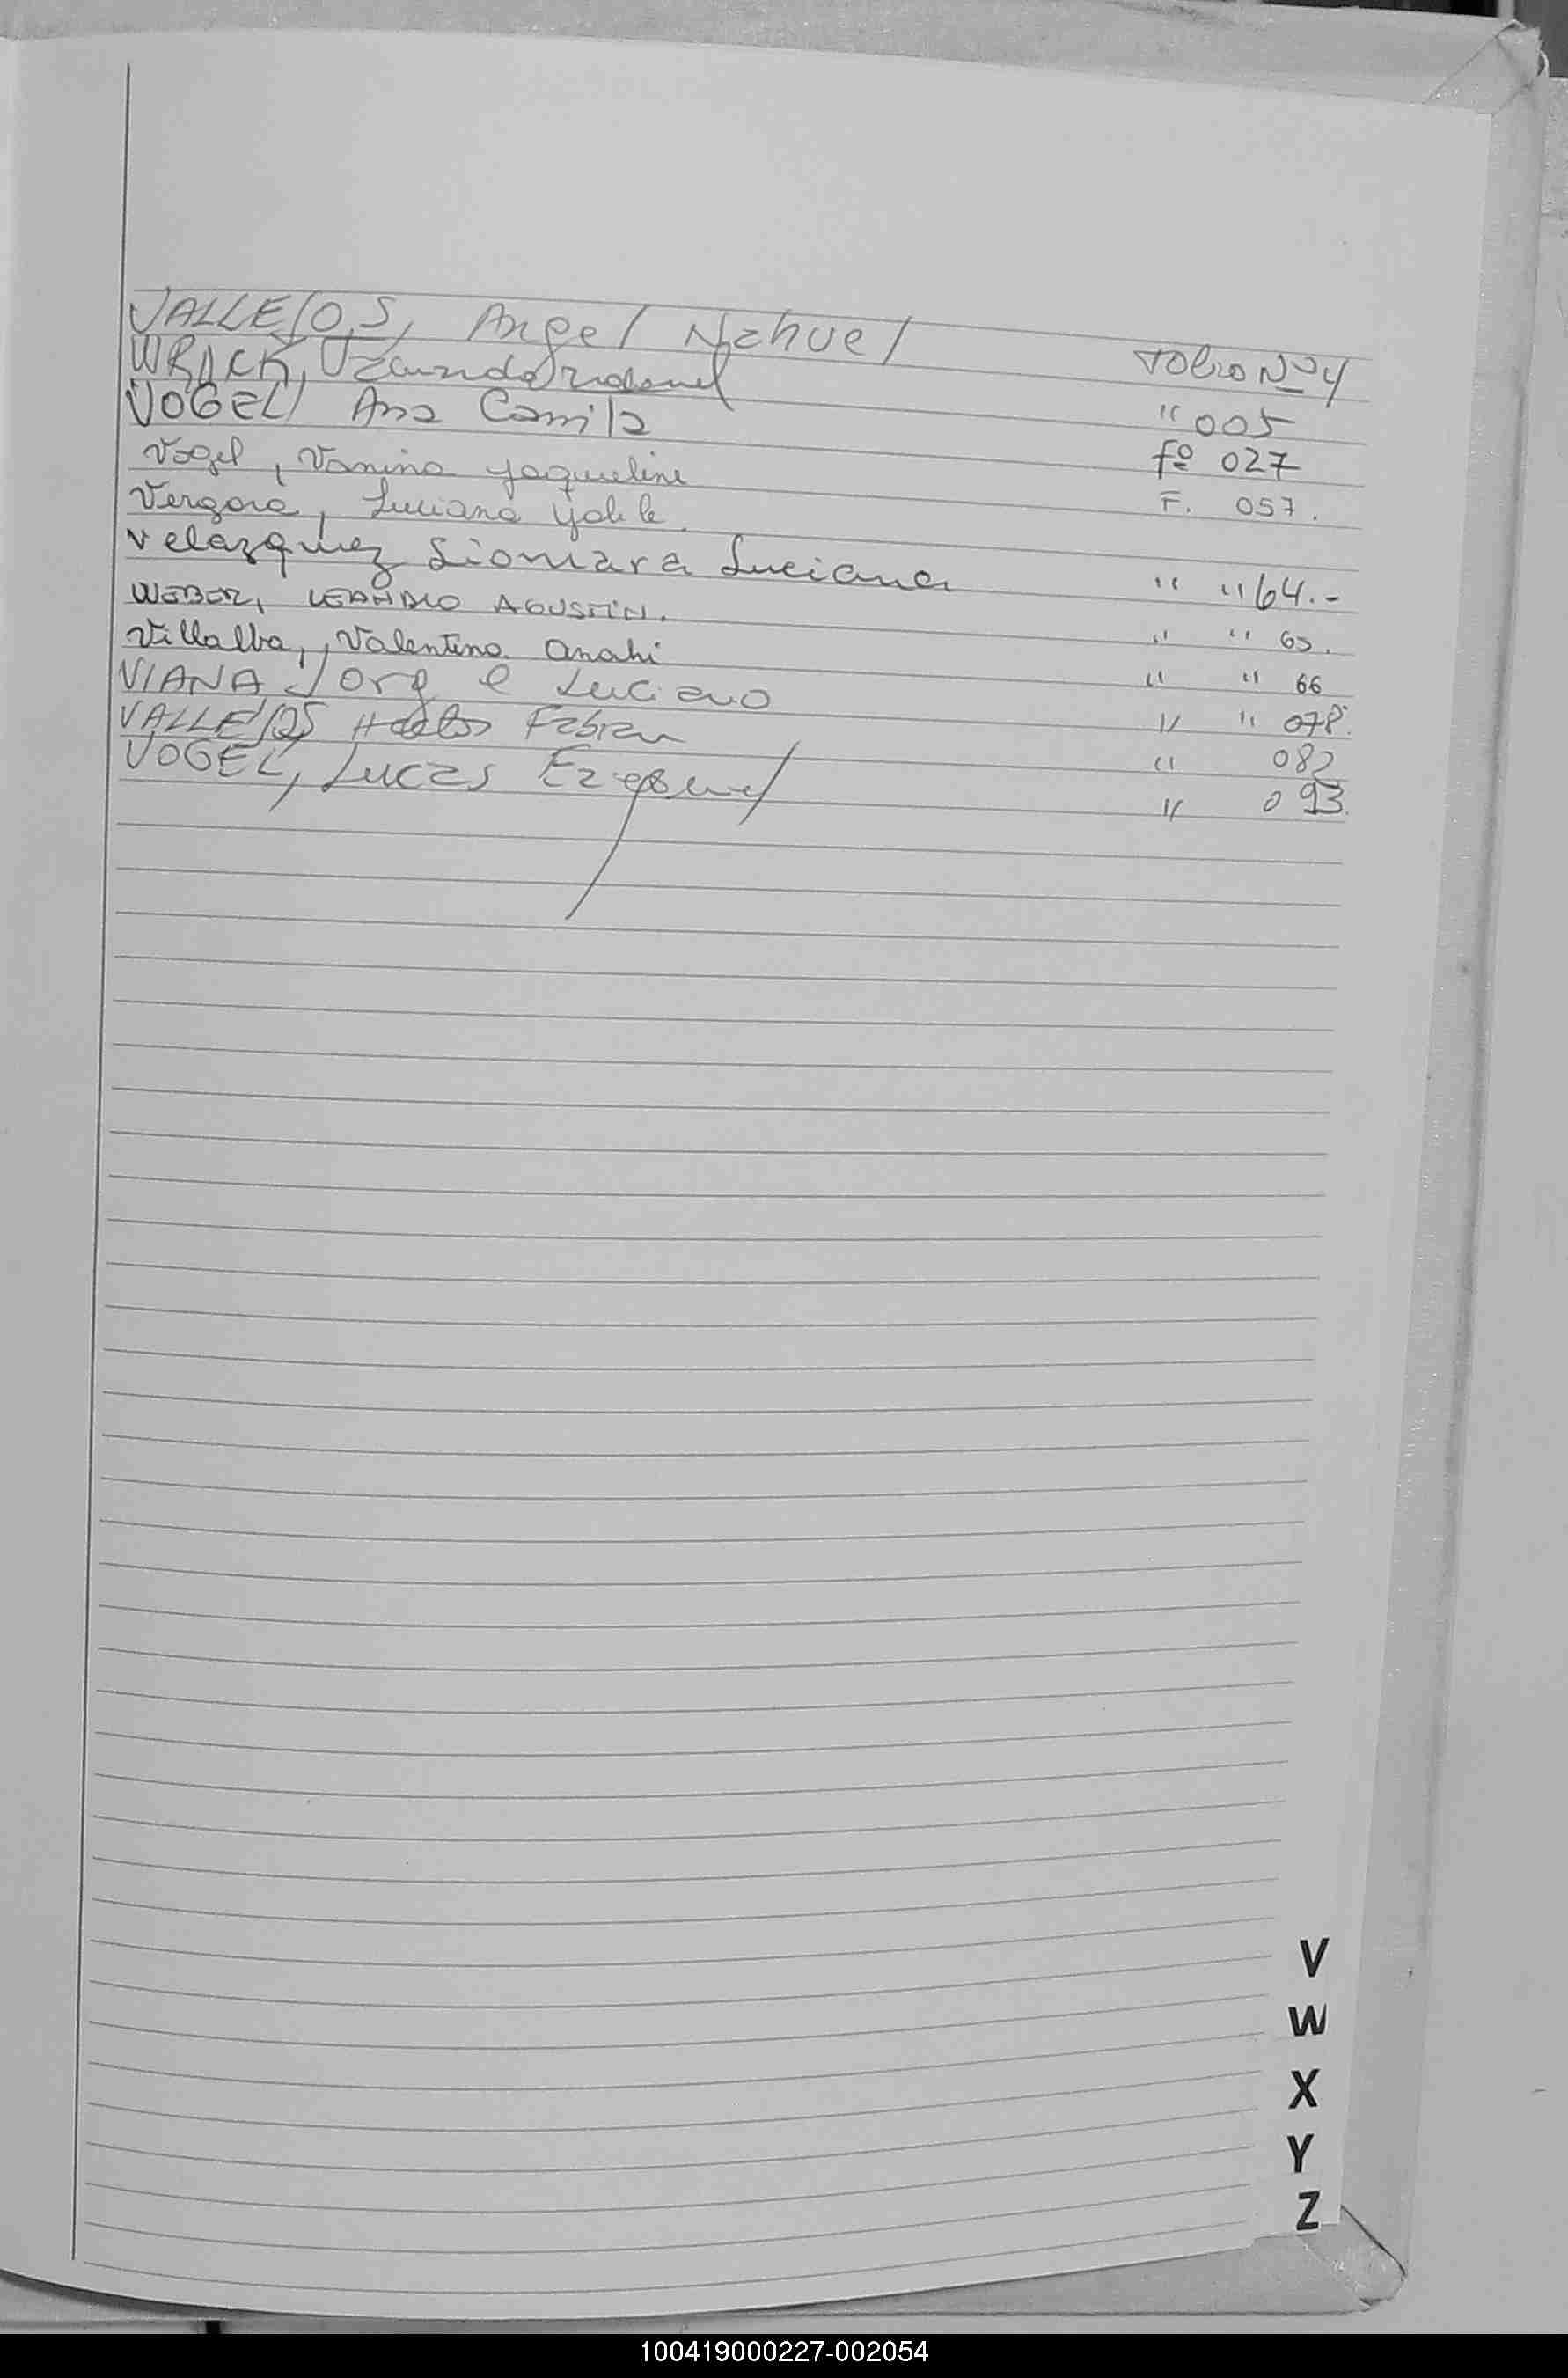 VALLEJOS, Angel Nahuel Folio Nº 4
WRACK, " 005
VOGEL, Ana Camila fº 027
Vogel, Vanina Jaqueline F. 057.
Vergara, Luciana
Velazquez Siomara Luciana " " 64.-
WEBER, LEANDRO AGUSTIN. " " 65.
Villalba, Valentina Anahi " " 66
VIANA Jorge Luciano " " 078.
VALLEJOS Fabian " 082
VOGEL, Lucas Ezequiel " 093.
V
W
X
Y
Z
100419000227-002054